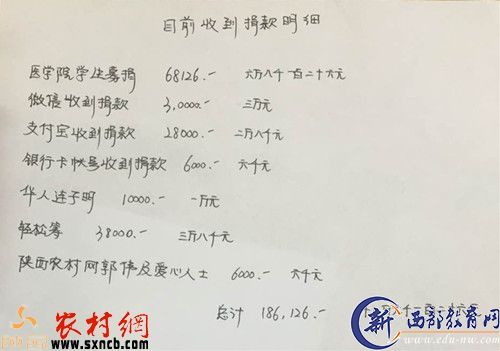 目前收到捐款明细
医学院学生募捐 68126.- 六万八千一百二十六元
微信收到捐款 3,0000.- 三万元
支付宝收到捐款 28000.- 二万八千元
银行卡帐号收到捐款 6000.- 六千元
华人连子明 10000.- 一万元
轻松筹 38000.- 三万八千元
陕西农村网郭伟及爱心人士 6000.- 六千元
总计 186,126.-
农村網
www.sxncb.com
新西部教育网
www.edu-nw.com